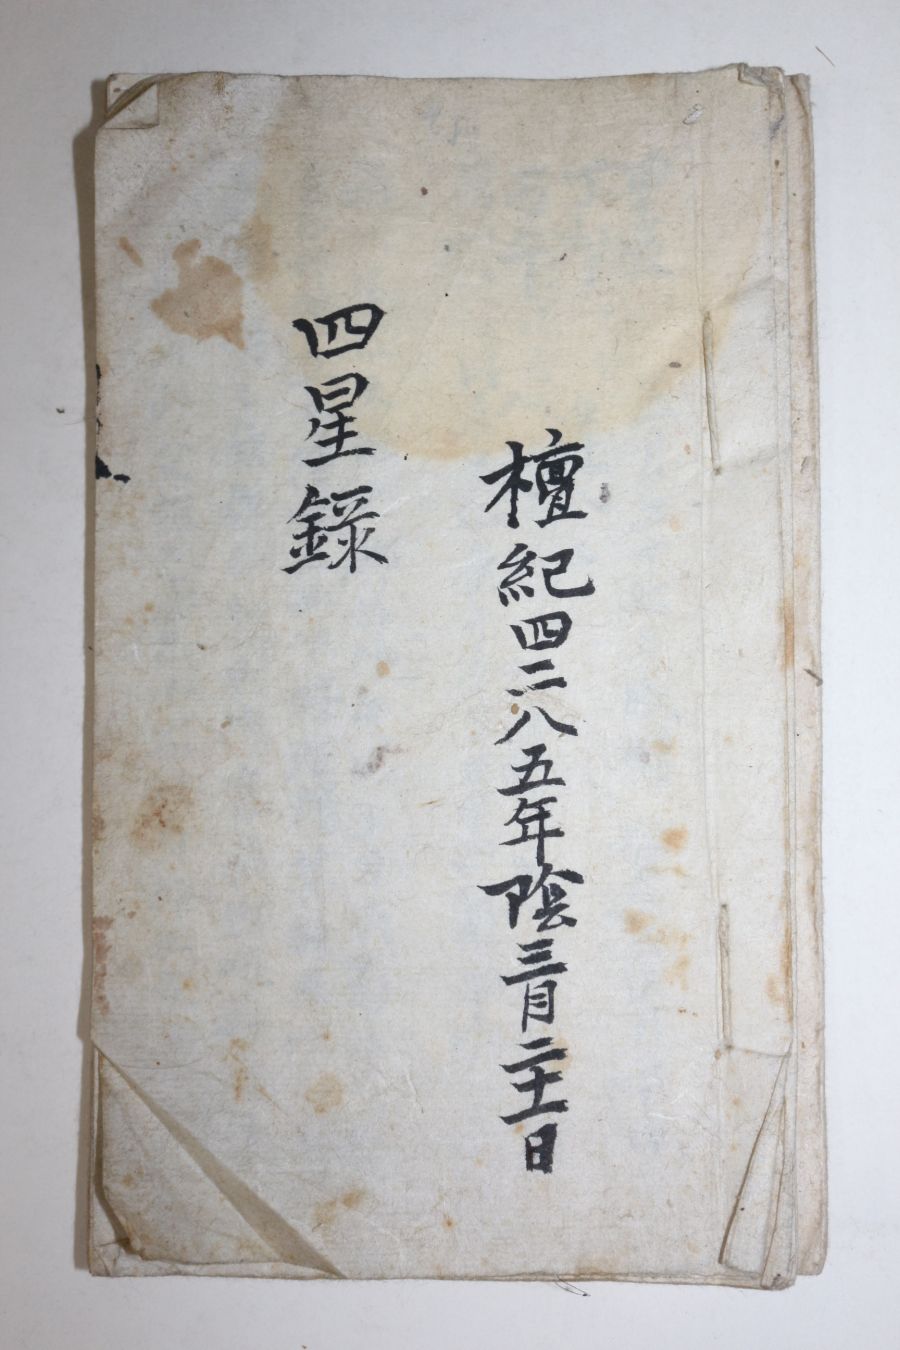 檀紀四二八五年陰三月二十一日
四星錄